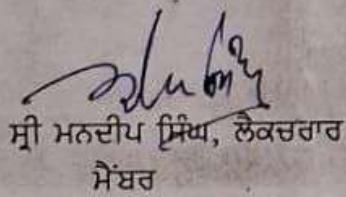 ਸ੍ਰੀ ਮਨਦੀਪ ਸਿੰਘ, ਲੈਕਚਰਾਰ
ਮੈਂਬਰ